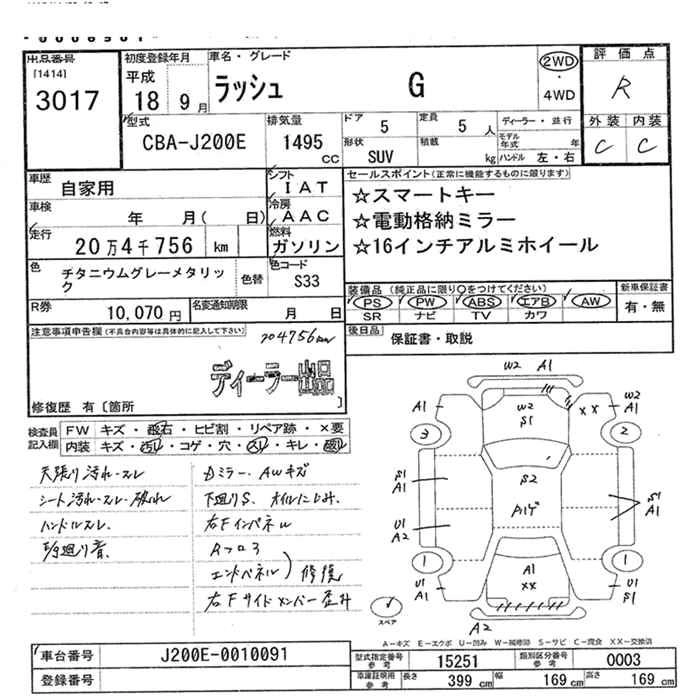 出品番号
[1414]
3017
初度登録年月
平成
18 9 月
車名・グレード
ラッシュ G
2WD
・
4WD
評価点
R
外装 内装
C C
型式
CBA-J200E
排気量
1495
CC
ドア 5
定員 5 人
形状
SUV
積載 kg
ディーラー・並行
モデル年式 年
ハンドル 左・右
車歴
自家用
車検
年 月( 日)
走行
20万4千756 km
シフト
IAT
冷房
AAC
燃料
ガソリン
セールスポイント(正常に機能するものに限ります)
☆スマートキー
☆電動格納ミラー
☆16インチアルミホイール
色
チタニウムグレーメタリック
色替
色コード
S33
装備品 (純正品に限り○をつけてください)
PS PW ABS エアB AW
SR ナビ TV カワ
新車保証書
有・無
R券
10,070 円
名変通知期限
月 日
後日品
保証書・取説
注意事項申告欄(不具合内容等は具体的に記入して下さい)
204756km
ディーラー出品
修復歴 有〔箇所 〕
検査員記入欄
FW キズ・飛石・ヒビ割・リペア跡・×要
内装 キズ・汚れ・コゲ・穴・スレ・キレ・破れ
天張り汚れ・スレ
シート汚れ・スレ・破れ
ハンドルスレ
Dミラー、AWキズ
下廻りS、オイルにじみ
右Fインパネル
エンドパネル) 修復
右Fサイドメンバー歪み
W2 A1
A1
W2
A1
W2
S1
××
3
2
S1
A1
S2
S1
A1
U1
A2
1
1
U1
A1
A1
××
U1
S1
A2
スペア
A－キズ E－エクボ U－凹み W－補修跡 S－サビ C－腐食 XX－交換済
車台番号
J200E-0010091
登録番号
型式指定番号
参考
15251
類別区分番号
参考
0003
車庫証明用
参考
長さ 399 cm
幅 169 cm
高さ 169 cm